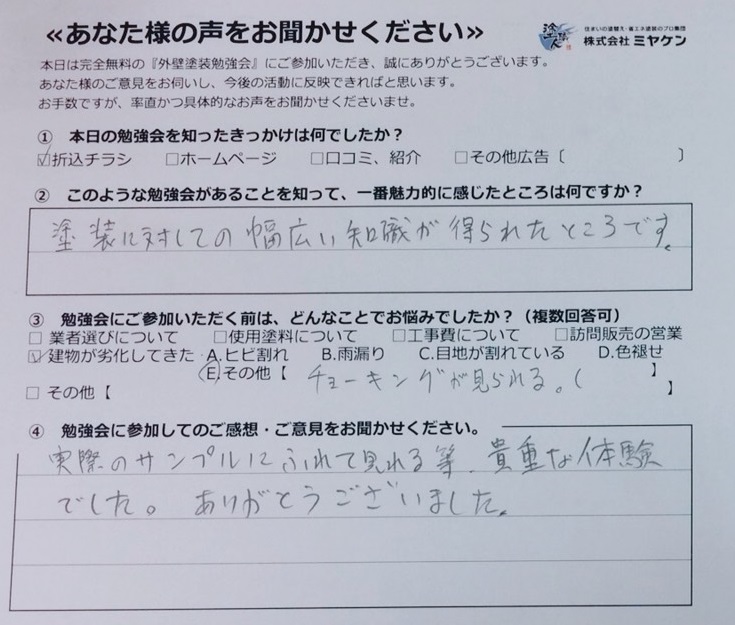 ≪あなた様の声をお聞かせください≫
住まいの塗替え・省エネ塗装のプロ集団
株式会社 ミヤケン
本日は完全無料の『外壁塗装勉強会』にご参加いただき、誠にありがとうございます。
あなた様のご意見をお伺いし、今後の活動に反映できればと思います。
お手数ですが、率直かつ具体的なお声をお聞かせくださいませ。
① 本日の勉強会を知ったきっかけは何でしたか？
☑折込チラシ □ホームページ □口コミ、紹介 □その他広告〔 〕
② このような勉強会があることを知って、一番魅力的に感じたところは何ですか？
塗装に対しての幅広い知識が得られたところです。
③ 勉強会にご参加いただく前は、どんなことでお悩みでしたか？（複数回答可）
□ 業者選びについて □使用塗料について □工事費について □訪問販売の営業
☑建物が劣化してきた A.ヒビ割れ B.雨漏り C.目地が割れている D.色褪せ
E.その他【 チョーキングが見られる。( 】
□ その他【 】
④ 勉強会に参加してのご感想・ご意見をお聞かせください。
実際のサンプルにふれて見れる等、貴重な体験
でした。ありがとうございました。